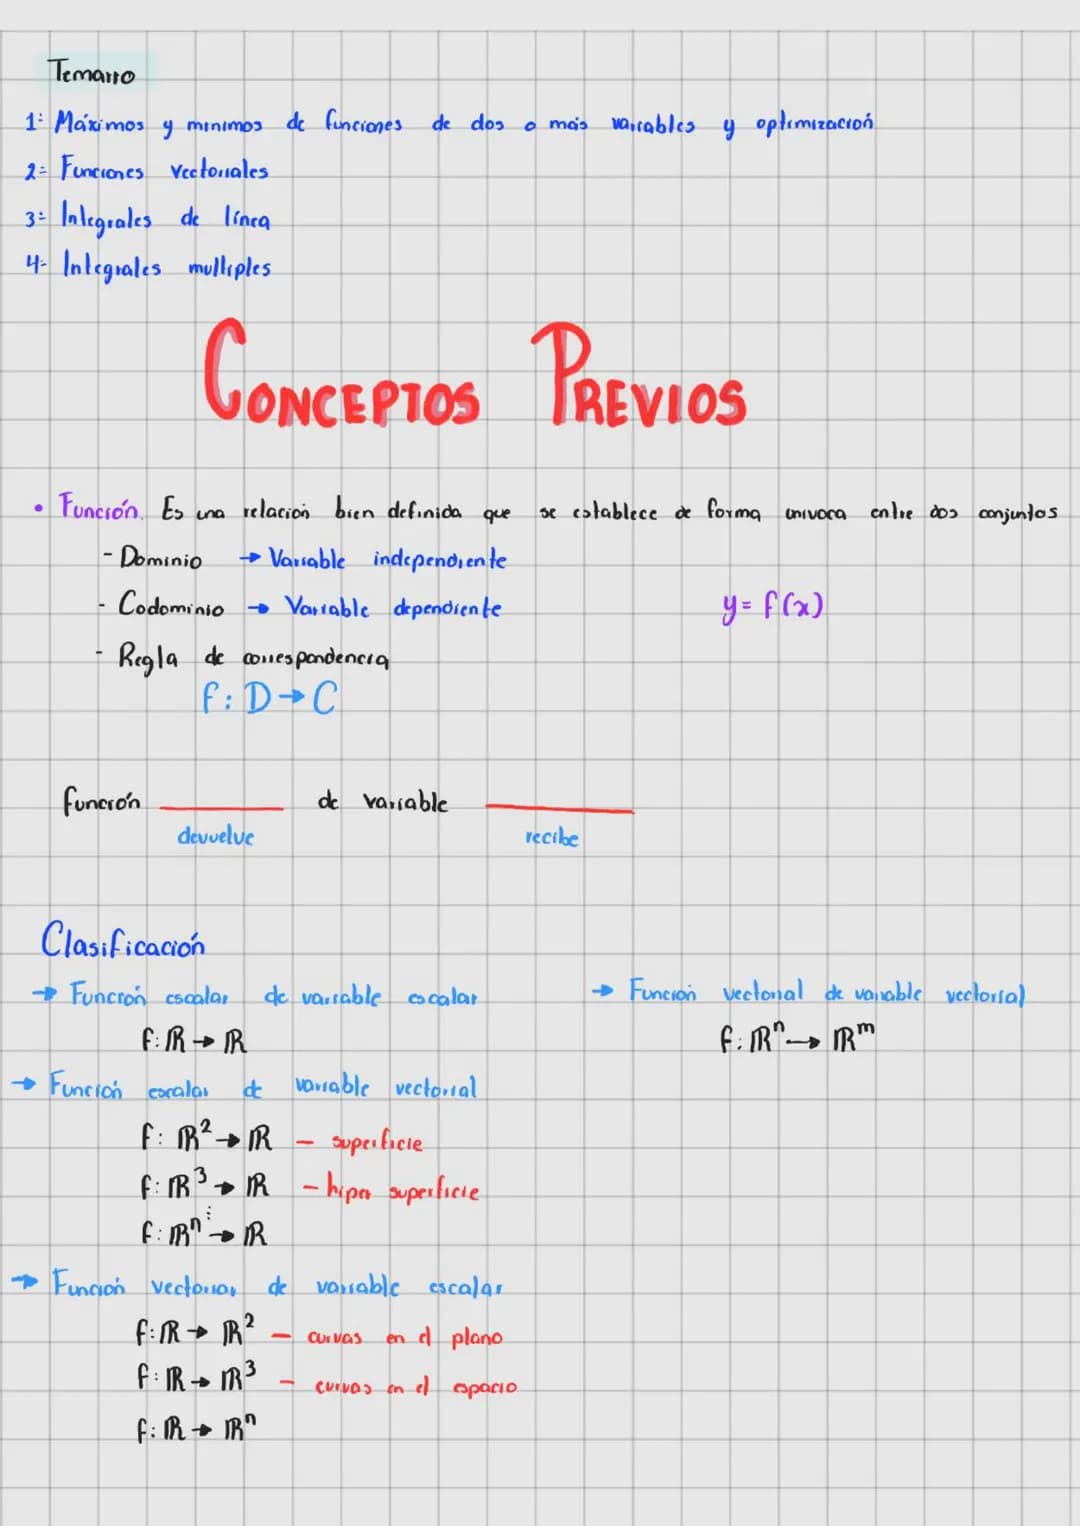 Temario
1: Máximos y minimos de funciones de dos o más variables y optimización
2= Funciones vectoriales
3= Integrales de línea
4- Integrales multiples
CONCEPTOS PREVIOS
• Función. Es una relación bien definida que se establece de forma univoca entre dos conjuntos
- Dominio → Variable independiente
- Codominio → Variable dependiente
y = f(x)
- Regla de correspondencia
f: D → C
función ______ de variable ______
devuelve recibe
Clasificación
→ Función escalar de variable escalar
f: ℝ → ℝ
→ Función escalar de variable vectorial
f: ℝ² → ℝ - superficie
f: ℝ³ → ℝ - hiper superficie
⋮
f: ℝⁿ → ℝ
→ Función vectorial de variable escalar
f: ℝ → ℝ² - curvas en el plano
f: ℝ → ℝ³ - curvas en el espacio
f: ℝ → ℝⁿ
→ Función vectorial de variable vectorial
f: ℝⁿ → ℝᵐ